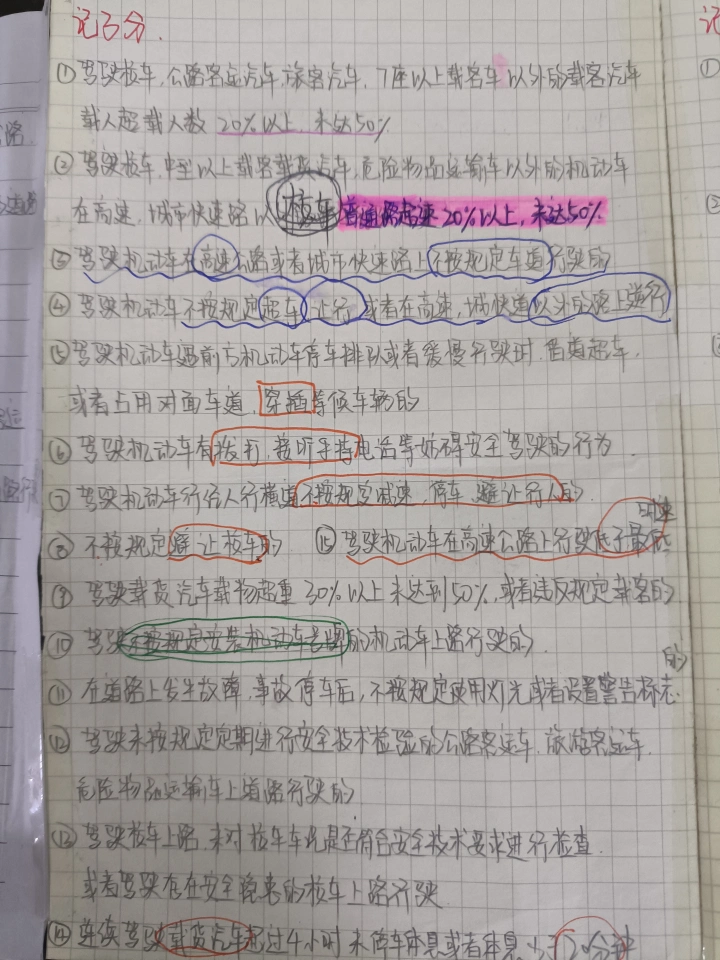 记3分.
① 驾驶校车, 公路客运汽车, 旅客汽车, 7座以上载客车以外的载客汽车
载人超载人数 20%以上, 未达50%
② 驾驶校车, 中型以上载客载货汽车, 危险物品运输车以外的机动车
在高速, 城市快速路以 校车 普通路超速20%以上, 未达50%.
③ 驾驶机动车在高速公路或者城市快速路上不按规定车道行驶的
④ 驾驶机动车不按规定超车, 让行, 或者在高速, 城快速以外的路上逆行
⑤ 驾驶机动车遇前方机动车停车排队或者缓慢行驶时, 借道超车,
或者占用对面车道, 穿插等候车辆的
⑥ 驾驶机动车有拨打, 接听手持电话等妨碍安全驾驶的行为.
⑦ 驾驶机动车行经人行横道不按规定减速, 停车, 避让行人的.
⑧ 不按规定避让校车的 ⑮ 驾驶机动车在高速公路上行驶低于最低时速
⑨ 驾驶载货汽车载物超重 30%以上未达到50%, 或者违反规定载客的
⑩ 驾驶不按规定安装机动车号牌的机动车上路行驶的.
⑪ 在道路上发生故障, 事故停车后, 不按规定使用灯光或者设置警告标志的.
⑫ 驾驶未按规定定期进行安全技术检验的公路客运车, 旅游客运车,
危险物品运输车上道路行驶的
⑬ 驾驶校车上路, 未对校车车况是否符合安全技术要求进行检查.
或者驾驶存在安全隐患的校车上路行驶
⑭ 连续驾驶载货汽车超过4小时未停车休息或者休息少于20分钟